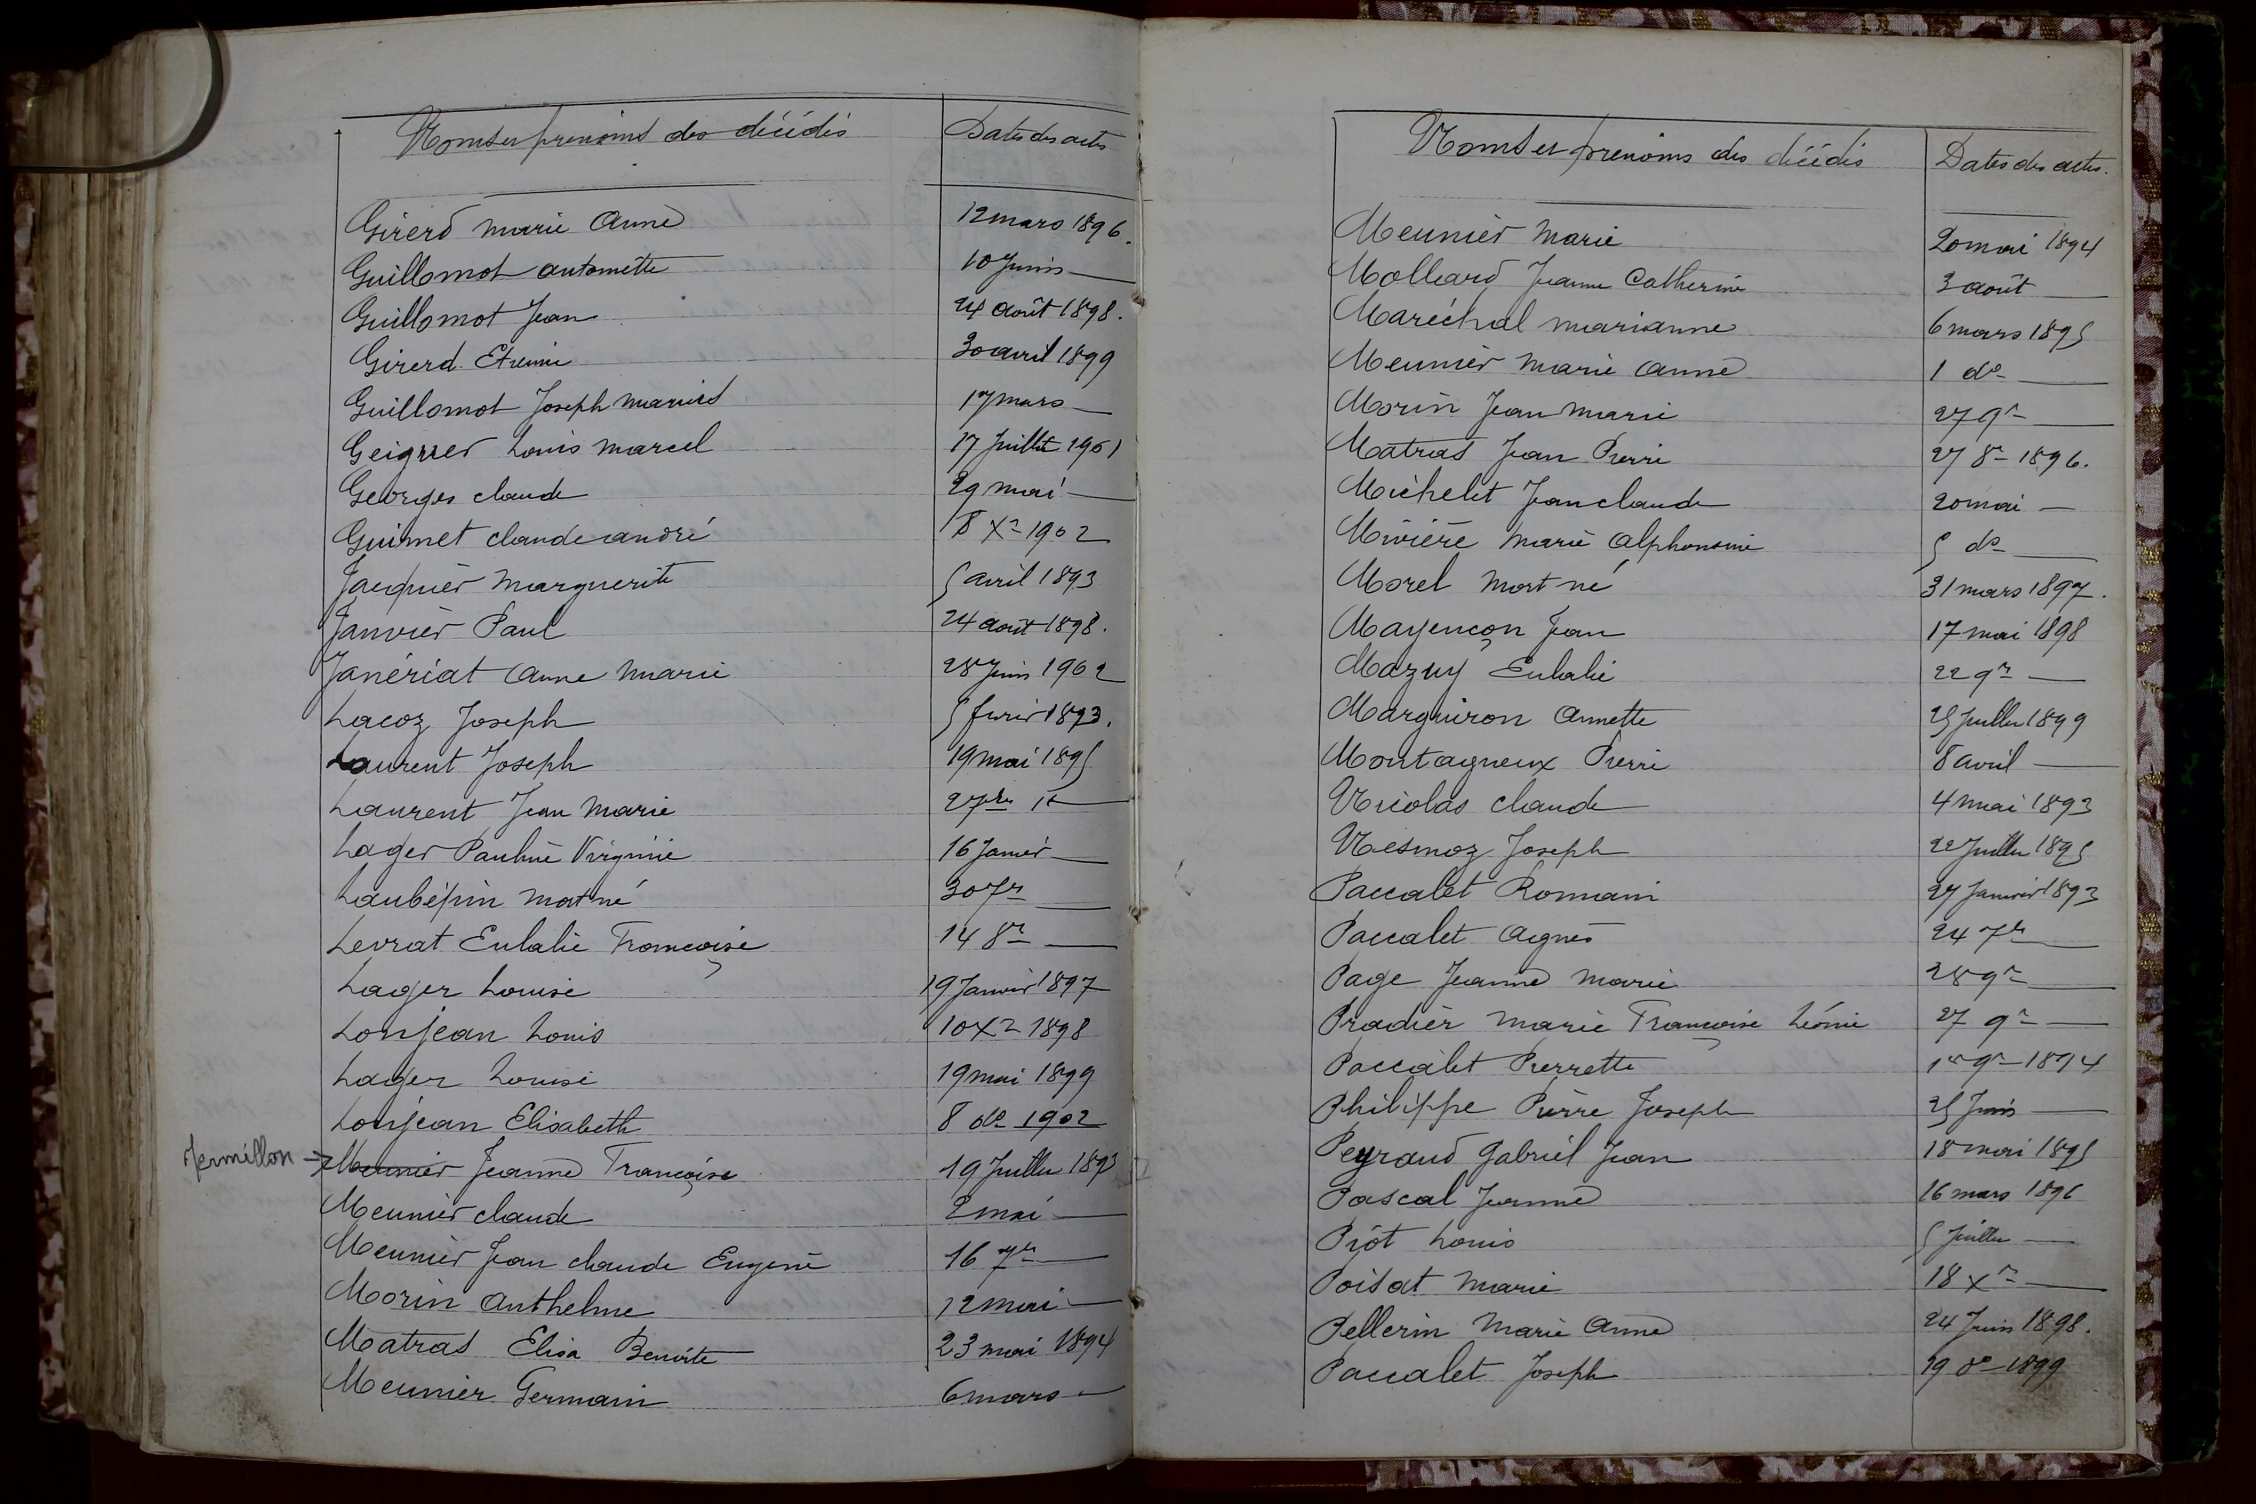 Noms et prenoms des décédés Dates des actes
Girerd Marie Anne 12 mars 1896.
Guillomot Antoinette 10 Juin —
Guillomot Jean 24 août 1898.
Girerd Etienne 30 avril 1899
Guillomot Joseph Marius 17 mars —
Geigner Louis Marcel 17 Juillet 1901
Georges Claude 29 mai —
Guimet Claude André 8 Xre 1902
Jacquier Marguerite 5 avril 1893
Janvier Paul 24 août 1898.
Janériat Anne Marie 28 Juin 1902
Lacoz Joseph 5 fevrier 1893.
Laurent Joseph 19 mai 1895
Laurent Jean Marie
Lager Pauline Virginie 16 Janvier —
Laubépin mort né 30 7re —
Levrat Eulalie Françoise 14 8re —
Lager Louise 19 Janvier 1897
Lonjean Louis 10 Xre 1898
Lager Louise 19 mai 1899
Lonjean Elisabeth 8 do 1902
Jermillon → Meunier Jeanne Françoise 19 Juillet 1893
Meunier Claude 2 mai —
Meunier Jean Claude Eugène 16 7re —
Morin Anthelme 12 mai —
Matras Elisa Benoite 23 mai 1894
Meunier Germain 6 mars —
Noms et prenoms des décédés Dates des actes.
Meunier Marie 20 mai 1894
Mollard Jeanne Catherine 3 août —
Maréchal Marianne 6 mars 1895
Meunier Marie Anne 1 do —
Morin Jean Marie 27 9re —
Matras Jean Pierre 27 8re 1896.
Michelet Jean Claude 20 mai —
Mivière Marie Alphonsine 5 do —
Morel Mort né 31 mars 1897.
Mayençon Jean 17 mai 1898
Mazuy Eulalie 22 9re —
Marguiron Annette 25 Juillet 1899
Montagneux Pierre 8 avril —
Nicolas Claude 4 mai 1893
Nesmoz Joseph 22 Juillet 1895
Paccalet Romain 27 Janvier 1893
Paccalet Agnès 24 7re —
Page Jeanne Marie 28 9re —
Pradier Marie Françoise Léonie 27 9re —
Paccalet Pierrette 1er 9re 1894
Philippe Pierre Joseph 25 Juin —
Peyraud Gabriel Jean 18 mai 1895
Pascal Jeanne 16 mars 1896
Pijot Louis 5 Juillet —
Poisat Marie 18 Xre —
Pellerin Marie Anne 24 Juin 1898.
Paccalet Joseph 19 8re 1899